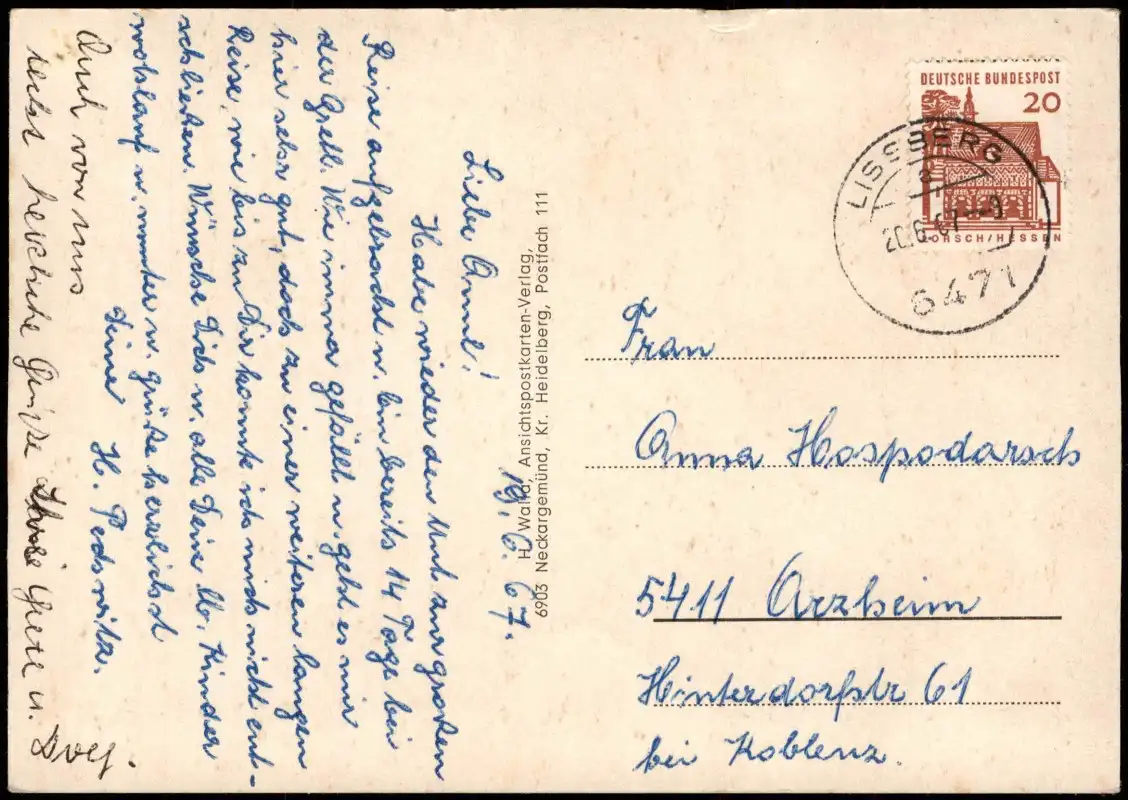 19. 6. 67.
Liebe Annl!
Habe wieder den Mut zur grossen
Reise aufgebracht u. bin bereits 14 Tage bei
der Gretl. Wie immer gefällt u. geht es mir
hier sehr gut, doch zu einer weiteren langen
Reise, wie bis zu Dir konnte ich mich nicht ent-
schließen. Wünsche Dich u. alle Deine lb. Kinder
wohlauf u. munter u. grüße herzlichst
Deine H.
Auch von uns
recht herzliche Grüße
Grete u.
H. Walla, Ansichtspostkarten-Verlag,
6903 Neckargemünd, Kr. Heidelberg, Postfach 111
DEUTSCHE BUNDESPOST
20
LORSCH/HESSEN
LISSBERG
20.6.67-9
6471
Frau
Anna Hospodarsch
5411 Arzheim
Hinterdorfstr 61
bei Koblenz.